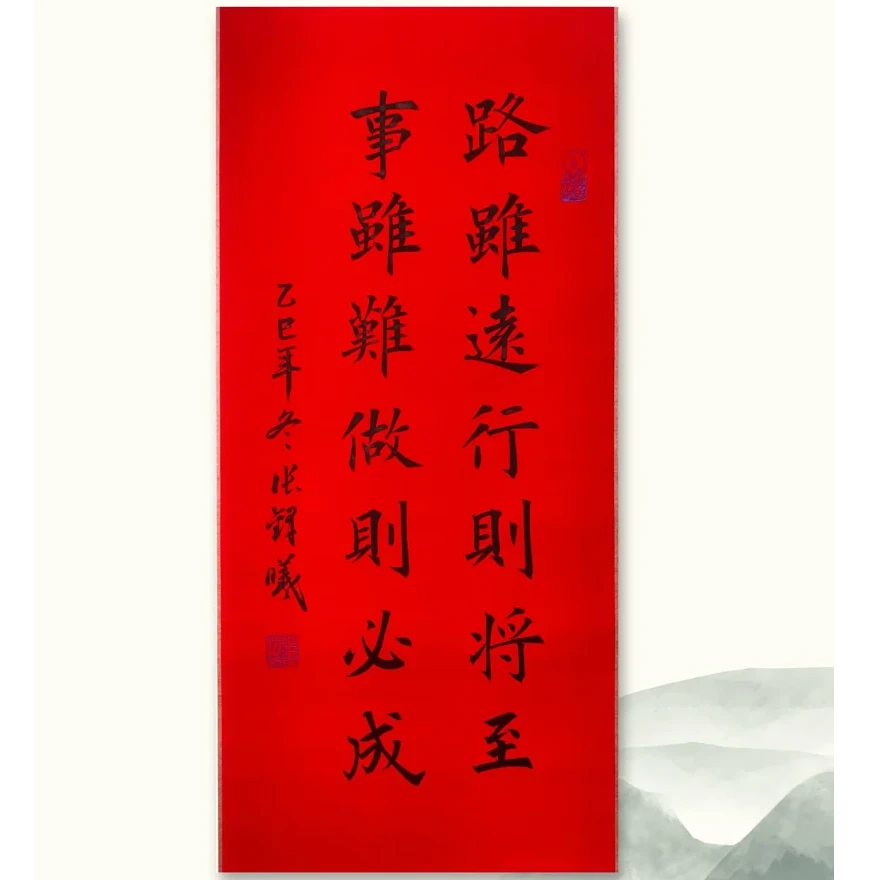 路雖遠行則将至
事雖難做則必成
乙巳年冬張鐸曦